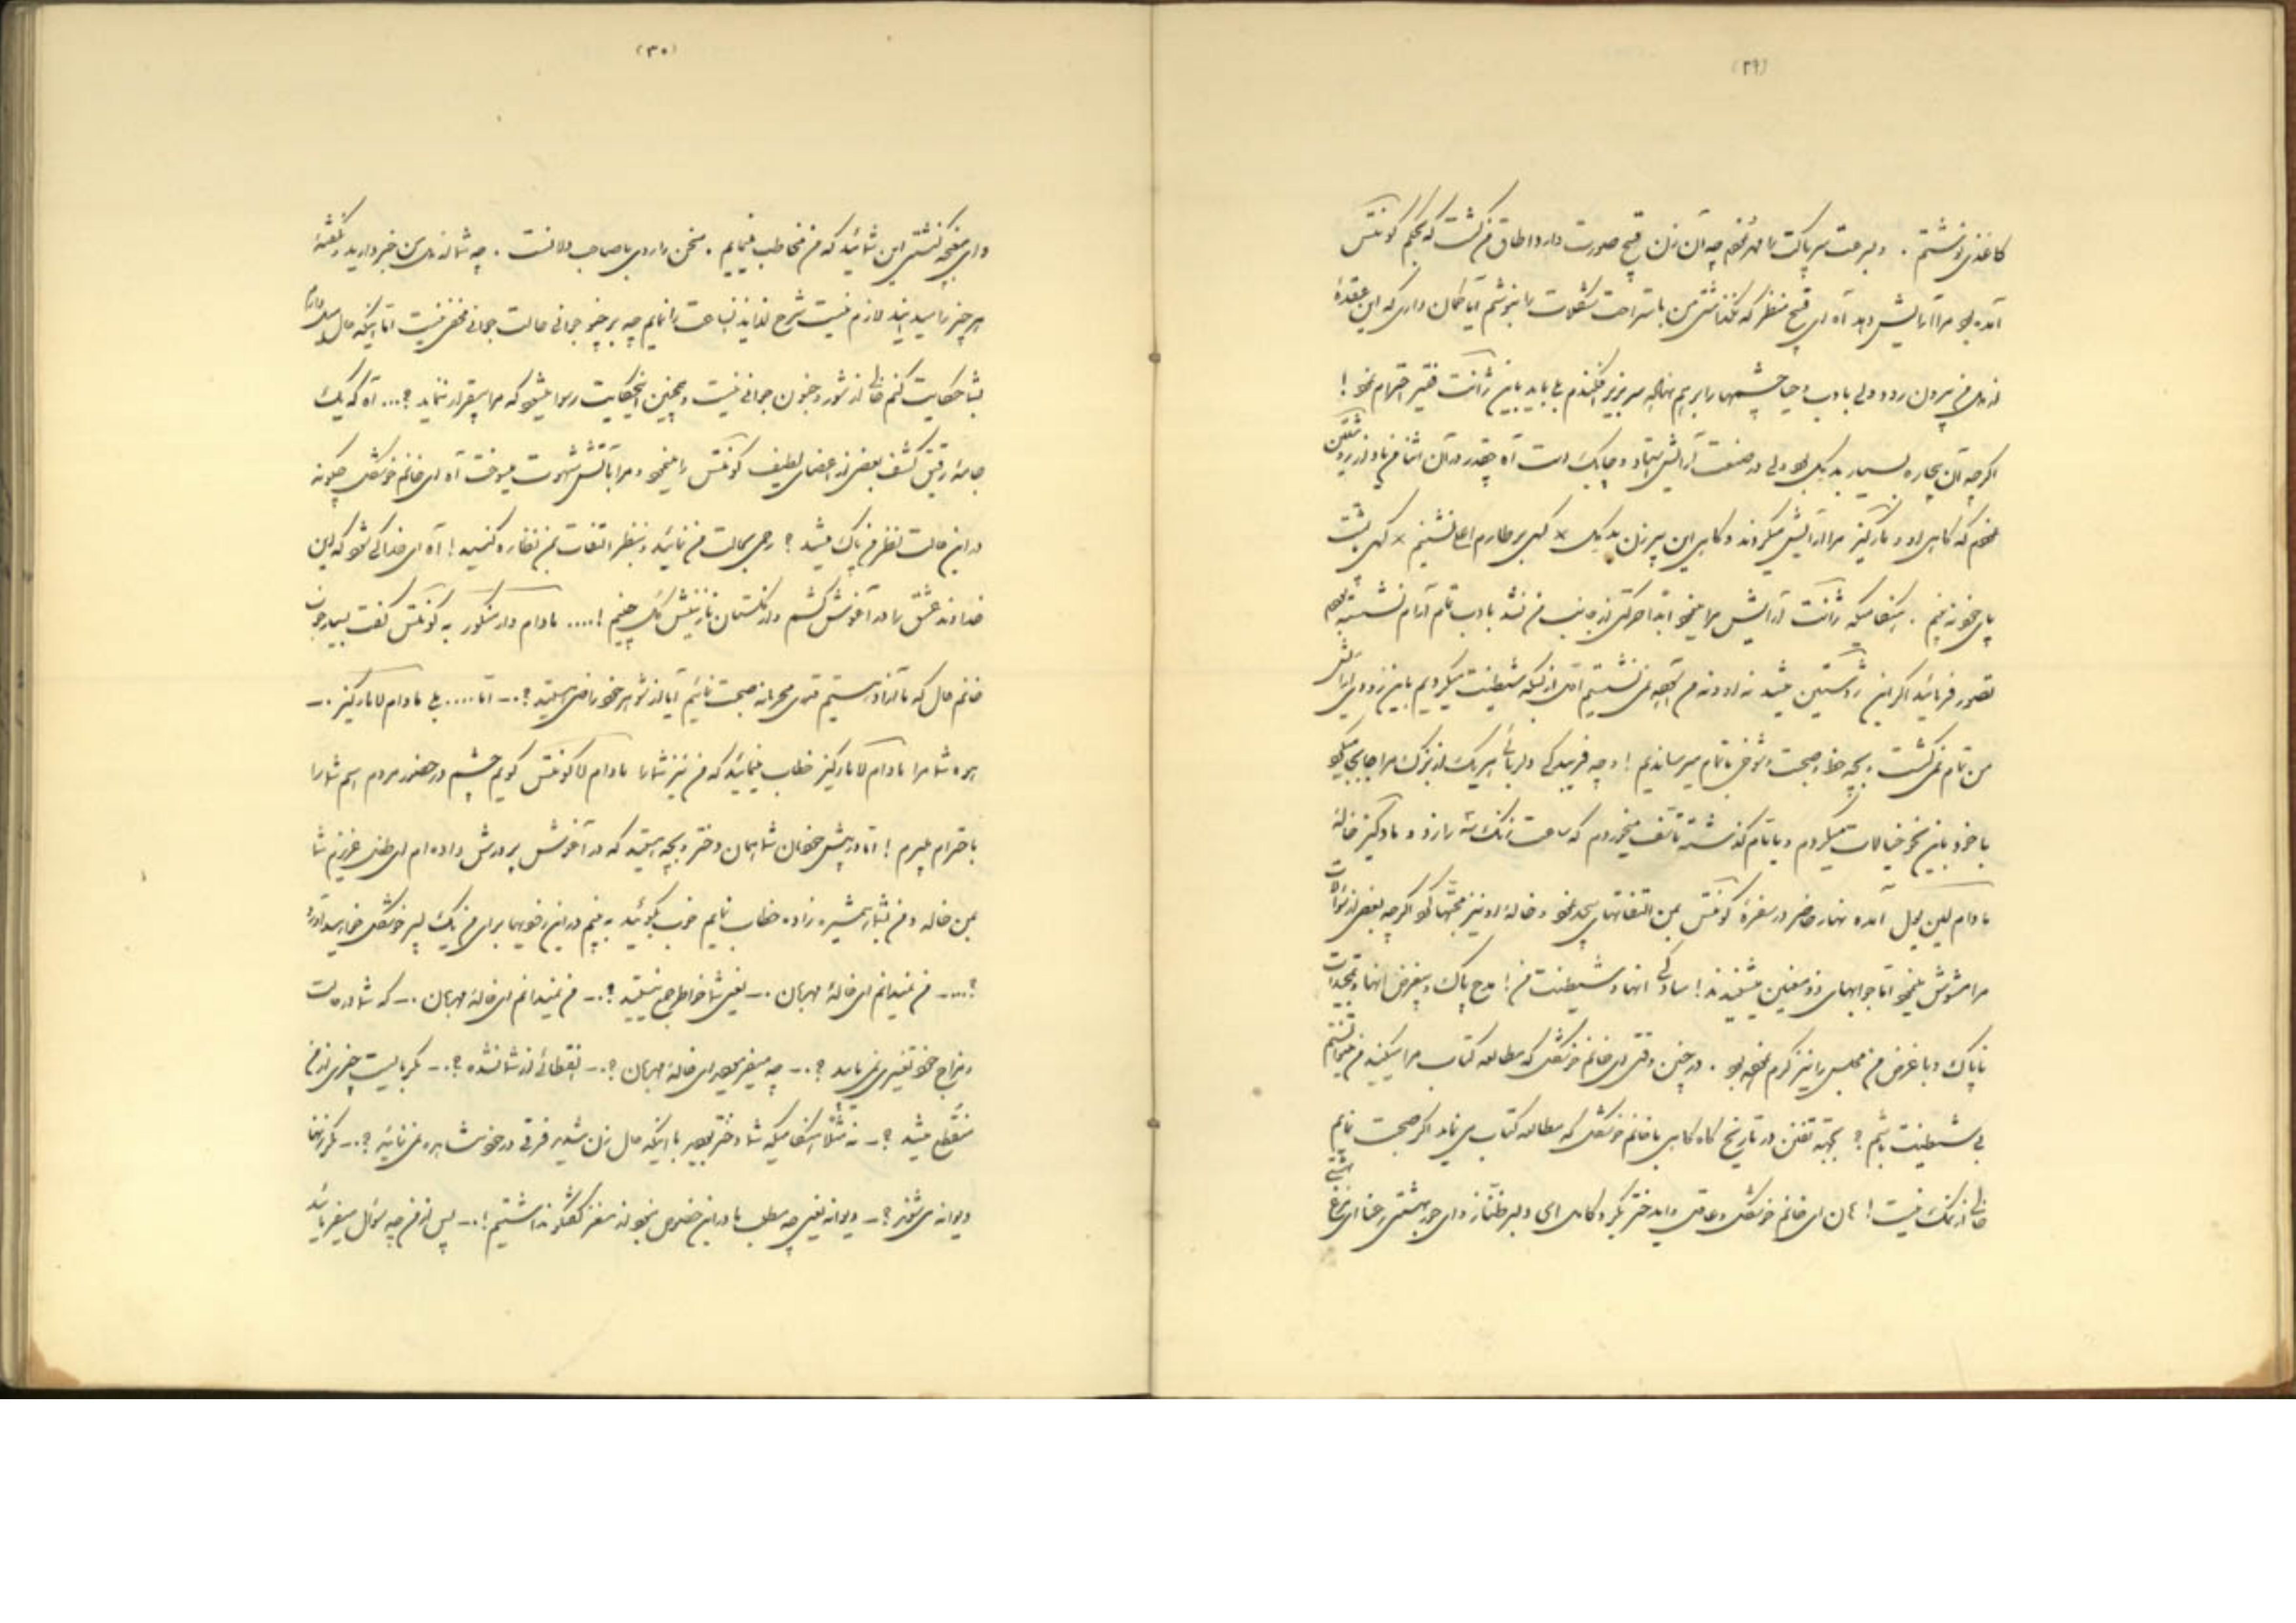 (۲۹)
کاغذی نوشتم . و بسرعت سر پاکت را مهر نمودم چه آن زن قبیح صورت وارد اطاق من گشت که بحکم کونتس
آمده بود مرا آرایش دهد آه ای قبیح منظر که نگذاشتی من باستراحت مشکلات را بنویسم آیا گمان داری که این عقده
از دل من بیرون رود ولی با ادب و حیا چشمها را بر هم نهاده سر بزیر افکندم بلی باید باین ژانت فقیر احترام نمود !
اگرچه آن بیچاره بسیار بد بود ولی در صنعت آرایش استاد و چابک است آه چقدر در آن اثنا من یاد از
نمودم که گاهی او و مارکیز مرا آرایش میکردند و گاهی این پیرزن
پای خود . هنگامیکه ژانت آرایش مرا مینمود ابدا حرکتی از جانب من نشد با ادب تمام آرام نشسته بودم
تصور فرمائید اگر این میشد نه او و نه من نمی نشستیم از بسکه شیطنت میکردیم باین زودی آرایش
من تمام نمی گشت و بچه حظ و صحبت و شوخی باتمام میرساندیم ! و چه فریبندگی و دلربائی هر یک از
با خود باین نحو خیالات میکردم و بایام گذشته تأسف میخوردم که ساعت زنگ سه را زد و مارکیز خاله
مادام آمده نهار حاضر در سفره کونتس بمن التفاتهای بیحد نمود و خاله او نیز محبتها کرد اگرچه بعضی از سؤالات
مرا مشوش مینمود اما جوابهای ذو معنیین میشنیدند ! سادگی آنها و شیطنت من ! مدح پاک و بیغرض آنها و تمجیدات
ناپاک و با غرض من مجلس را نیز گرم نموده بود . در چنین وقتی ای خانم خوشگل که مطالعه کتاب مرا میکنید من میتوانستم
بی شیطنت باشم ؟ بجهة تفنن در تاریخ گاه گاهی با خانم خوشگل که مطالعه کتاب می نماید اگر صحبت نمایم
خالی از نمک نیست ! هان ای خانم خوشگل و عاقل و ای دختر بکر و کامل ای دلبر طناز و ای حور بهشتی رعنا ای
(۳۰)
و ای بهشتی این شمائید که من مخاطب مینمایم . سخن را روی با صاحب دلانست . چه شما از دل من خبر دارید و نگفته
هر چیز را میدانید لازم نیست شرح لذایذ آنساعت را نمایم چه بر هیچ جوانی حالت جوانی مخفی نیست اما اینکه حال میل دارم
بشما حکایت کنم خالی از شور و جنون جوانی نیست و همچنین اینحکایت رسوا میشود که مرا بیقرار ننماید ؟... آه که یک
جامه رقیق کشف بعضی از اعضای لطیف کونتس را مینمود و مرا باتش شهوت میسوخت آه ای خانم خوشگل چگونه
در این حالت نظر من پاک میشد ؟ رحمی بحالت من نمائید و بنظر التفات بمن نظاره کنید ! آه ای خدا کی شود که این
خداوند عشق را در آغوش کشم و از گلستان نازنینش گل چینم !.... مادام دار به کونتس گفت بسیار خوب
خانم حال که ما آزاد هستیم قدری محرمانه صحبت نمائیم آیا از شوهر خود راضی هستید ؟.– اما.... بلی مادام لا مارکیز .–
چه شما مرا مادام لا مارکیز خطاب مینمائید که من نیز شما را مادام لا کونتس گویم چشم در حضور مردم اسم شما را
باحترام میبرم ! اما در پیش خودمان شما همان دختر و بچه هستید که در آغوش پرورش داده ام ای طفل عزیزم شما
بمن خاله و من بشما همشیره زاده خطاب نمایم خوب بگوئید ببینم در این زودیها برای من یک پسر خوشگل خواهید آورد
؟....– من نمیدانم ای خاله مهربان .– یعنی شما خواطر جمع نیستید ؟.– من نمیدانم ای خاله مهربان .– که شما در حالت
و مزاج خود تغییری نمی یابید ؟.– چه میفرمائید ای خاله مهربان ؟.– انقطاعی از شما نشده ؟.– مگر بایست چیزی از من
منقطع میشد ؟.– نه مثلا هنگامیکه شما دختر بودید با اینکه حال زن شدید فرقی در خود مشاهده نمی نمائید ؟.– مگر زنها
دیوانه می شوند ؟.– دیوانه یعنی چه مطلب ما در این خصوص نبود از مغز گفتگو نداشتیم !.– پس از من چه سؤال میفرمائید